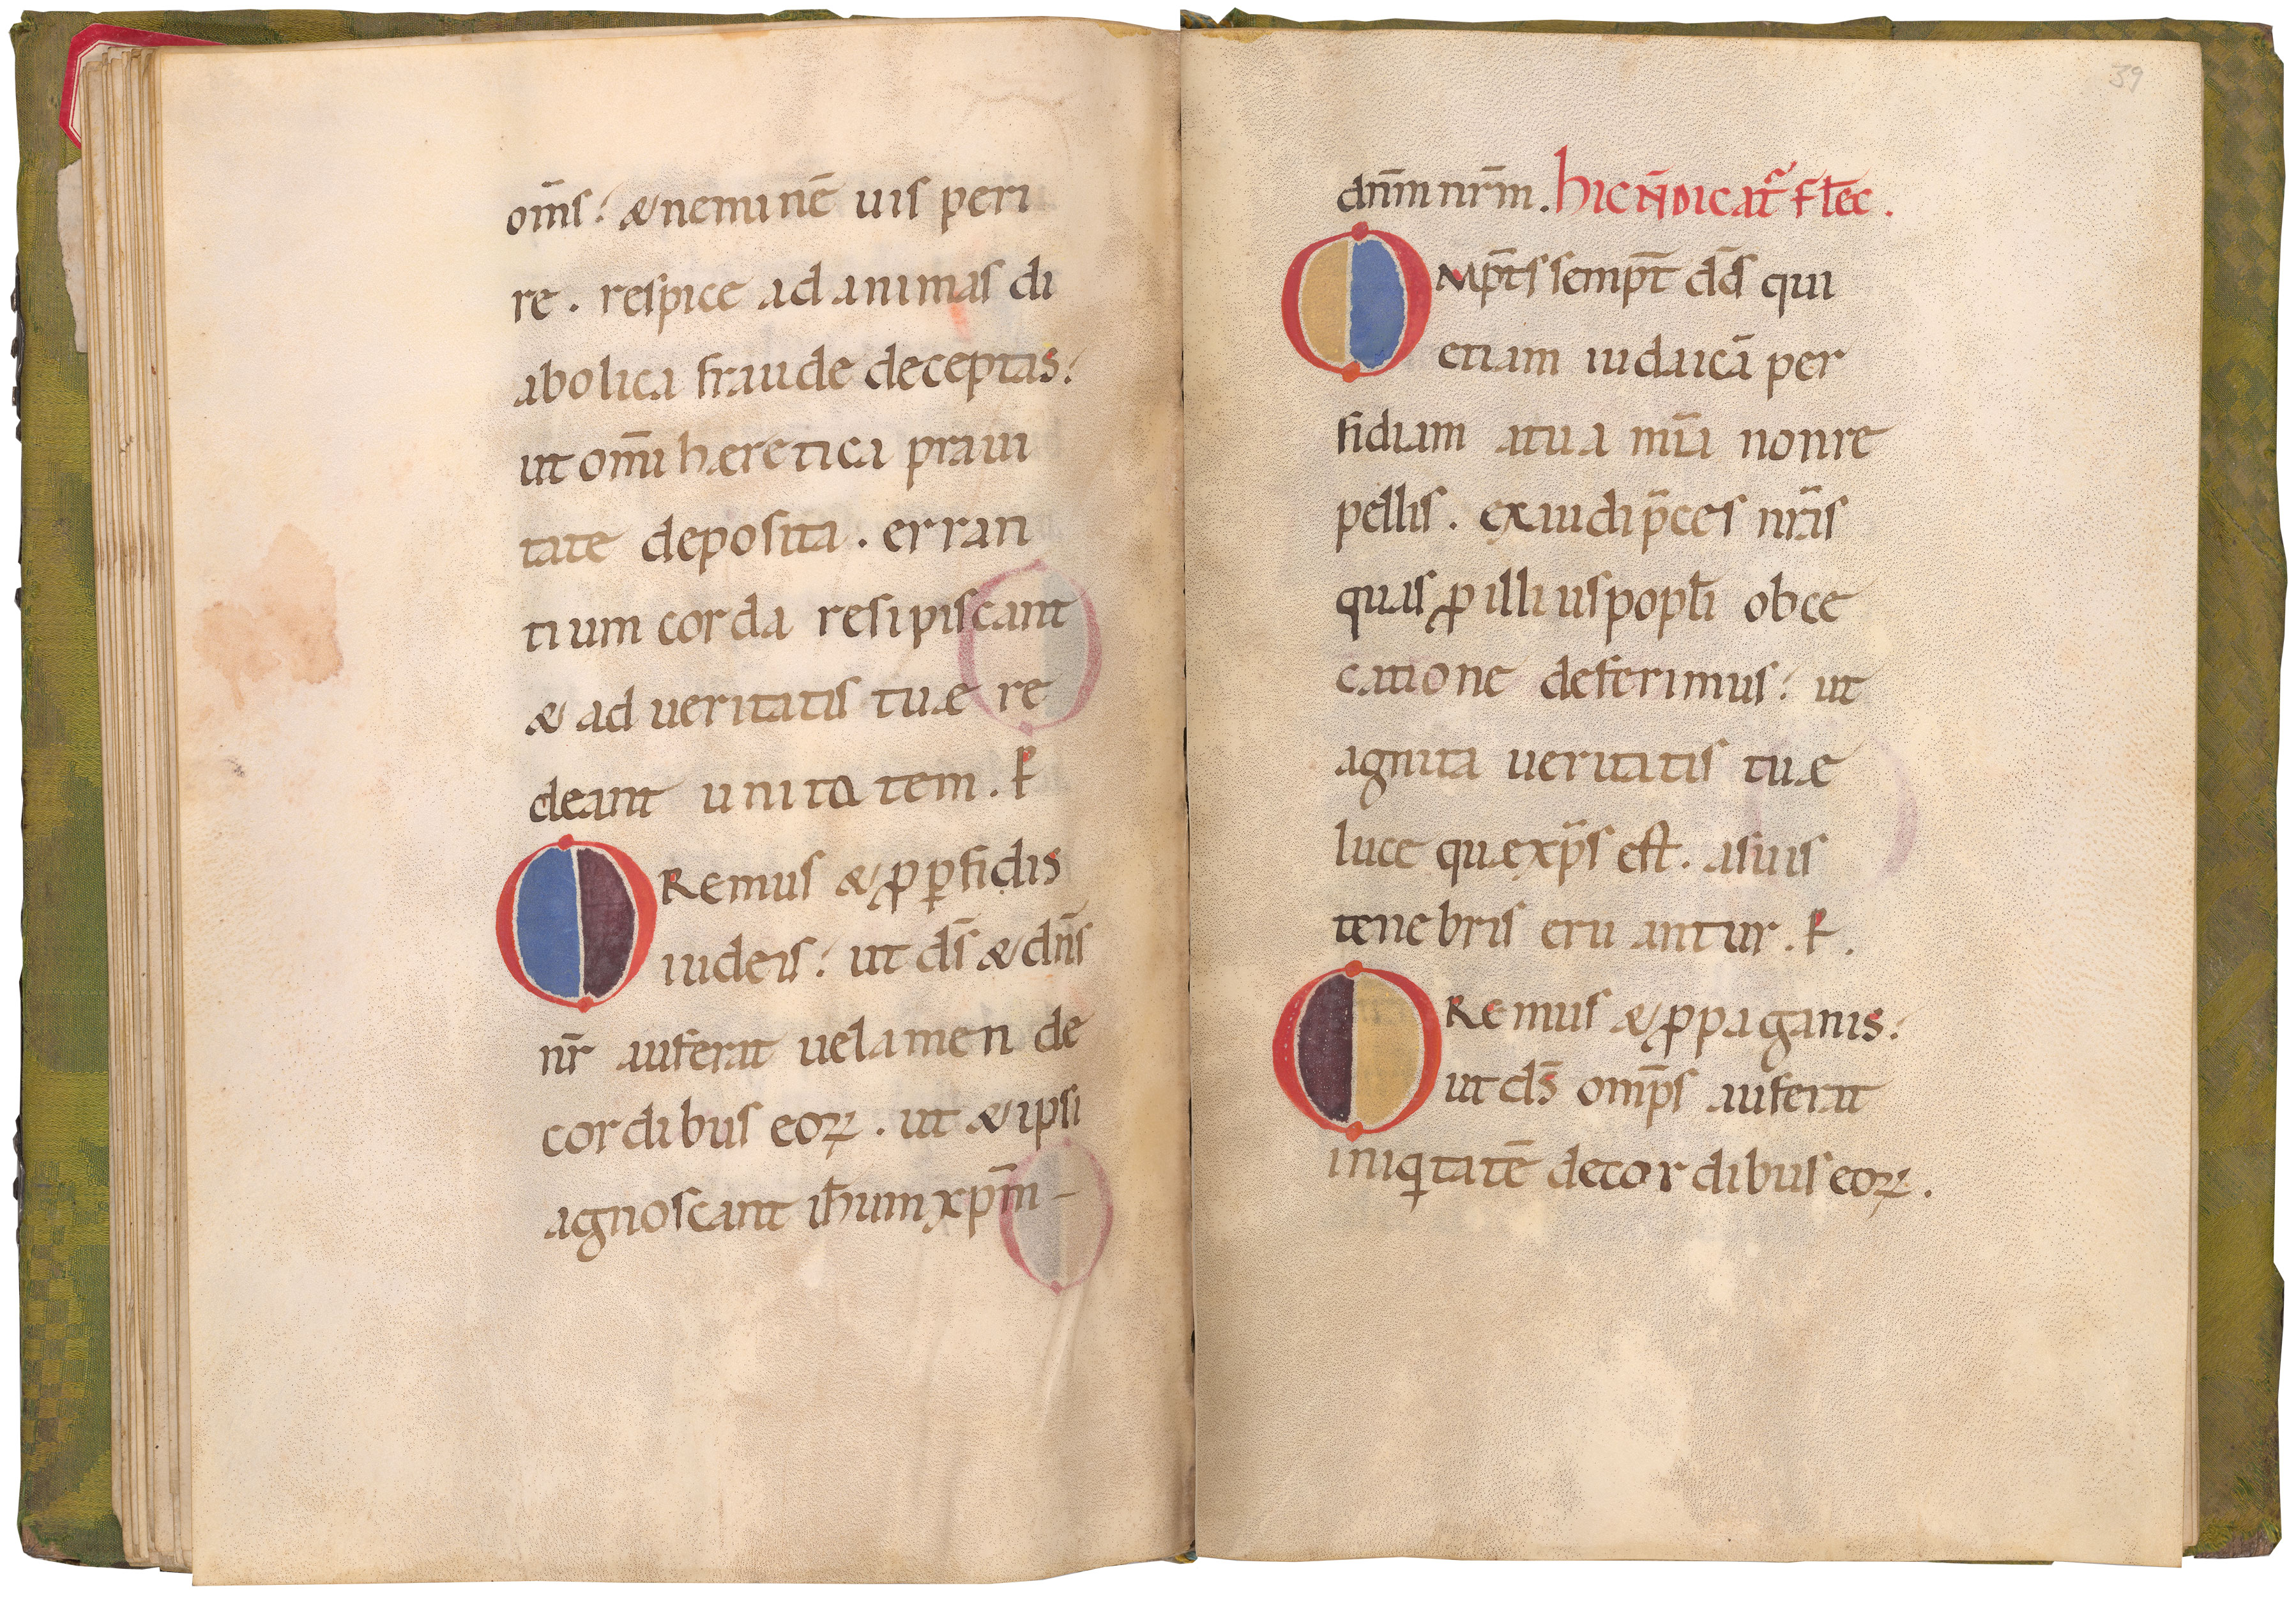 om̄s: & neminē uis peri
re. respice ad animas di
abolica fraude deceptas:
ut om̄i heretica praui
tate deposita. erran
tium corda resipiscant
& ad ueritatis tuae re
deant unitatem. P̶
OREmus & ꝓ ꝑfidis
iudeis: ut d̄s & dn̄s
nr̄ auferat uelamen de
cordibus eoꝝ. ut & ipsi
agnoscant ih̄um xp̄m –
39
dn̄m nr̄m. hIC N̄ DICATᷣ flec̄.
OMp̄ts semp̄t d̄s qui
etiam iudaicā per
fidiam a tua mīa non re
pellis. exaudi p̄ces nr̄is
quas ꝓ illius popl̄i obce
catione deferimus: ut
agnita ueritatis tuae
luce quae xp̄s est. a suis
tenebris eruantur. P̶.
OREmus & ꝓ paganis:
ut d̄s omp̄s auferat
iniqitatē de cordibus eoꝝ.